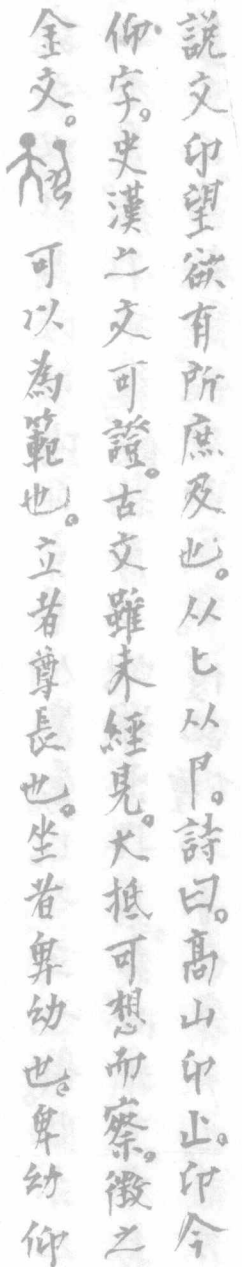 說文卬望欲有所庶及也。从匕从卪。詩曰。高山卬止。卬今
仰字。史漢之文可證。古文雖未經見。大抵可想而察。徵之
金文。可以為範也。立者尊長也。坐者卑幼也。卑幼仰